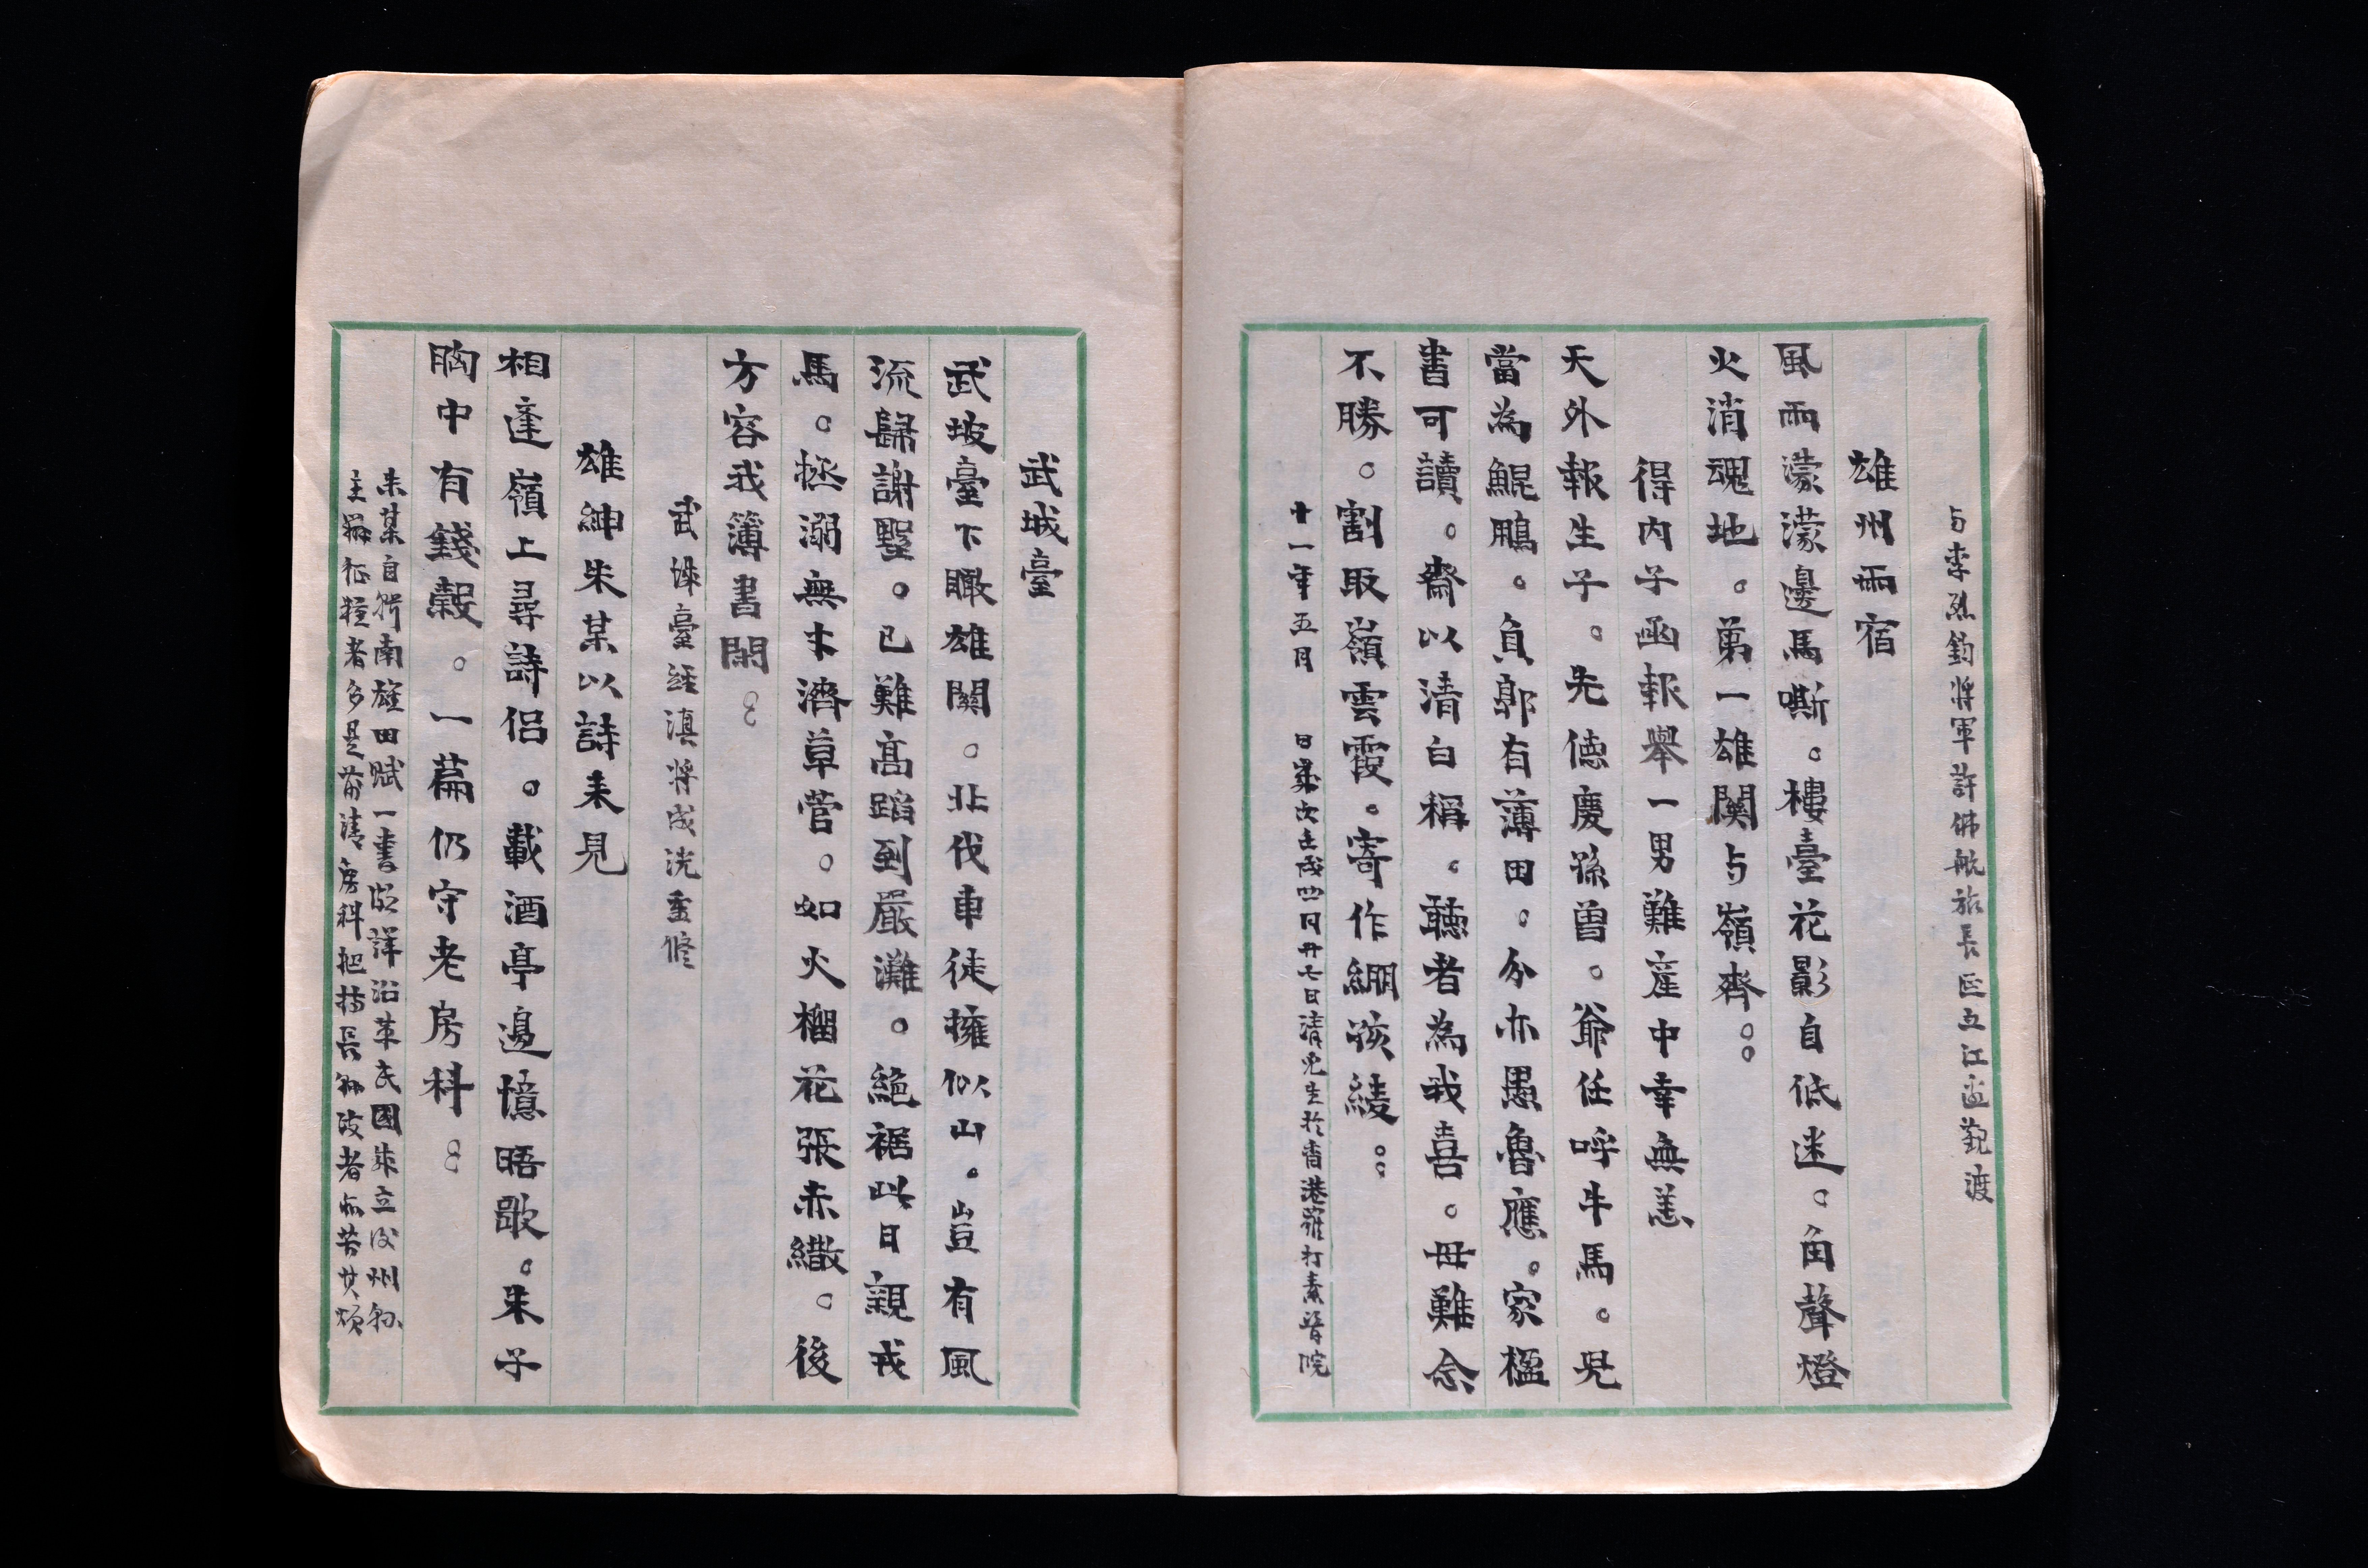 与李烈鈞將軍許佛航旅長區立江邊觀渡
雄州雨宿
風雨濛濛邊馬嘶。樓臺花影自低迷。角聲燈
火消魂地。第一雄関与嶺齊。。
得内子函報舉一男難產中幸無恙
天外報生子。先德慶孫曾。爺任呼牛馬。兒
當為鯤鵬。負郭有薄田。分亦愚魯應。家楹
書可讀。齋以清白稱。聽者為我喜。母難念
不勝。割取嶺雲霞。寄作綳孩綾。。
十一年五月　日歲次壬戌四月廿七日清兒生於香港羅打素醫院
武城臺
武坡臺下瞰雄關。北伐車徒擁似山。豈有風
流歸謝墅。已難高蹈到嚴灘。絕裾此日親戎
馬。拯溺無木濟草菅。如火榴花張赤繖。後
方容我簿書閑。。
武城臺經滇將成洸重修
雄紳朱某以詩来見
相逢嶺上尋詩侶。載酒亭邊憶晤歌。朱子
胸中有錢穀。一篇仍守老房科。。
朱某自撰南雄田賦一書頗詳沿革民國成立後州縣
主辦征糧者多是前清房科把持長縣政者亦苦其煩